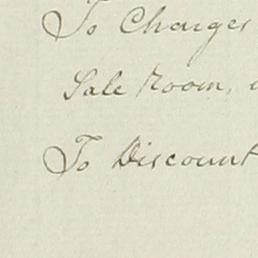 To Charges
Sale Room,
To Discount